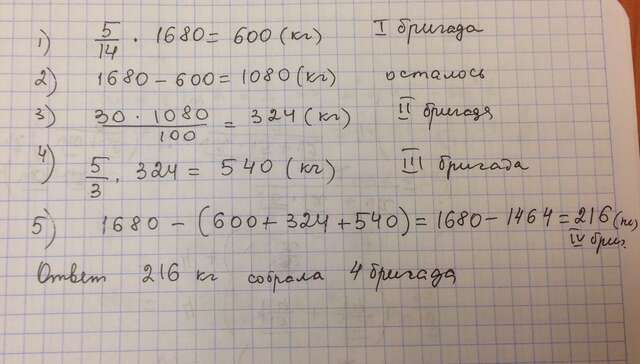 1) 5/14 · 1680 = 600 (кг) I бригада
2) 1680 - 600 = 1080 (кг) осталось
3) 30 · 1080/100 = 324 (кг) II бригада
4) 5/3 · 324 = 540 (кг) III бригада
5) 1680 - (600 + 324 + 540) = 1680 - 1464 = 216 (кг)
IV бриг.
Ответ 216 кг собрала 4 бригада